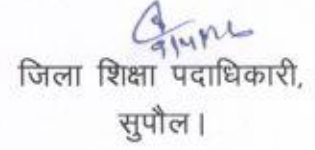 जिला शिक्षा पदाधिकारी,
सुपौल।